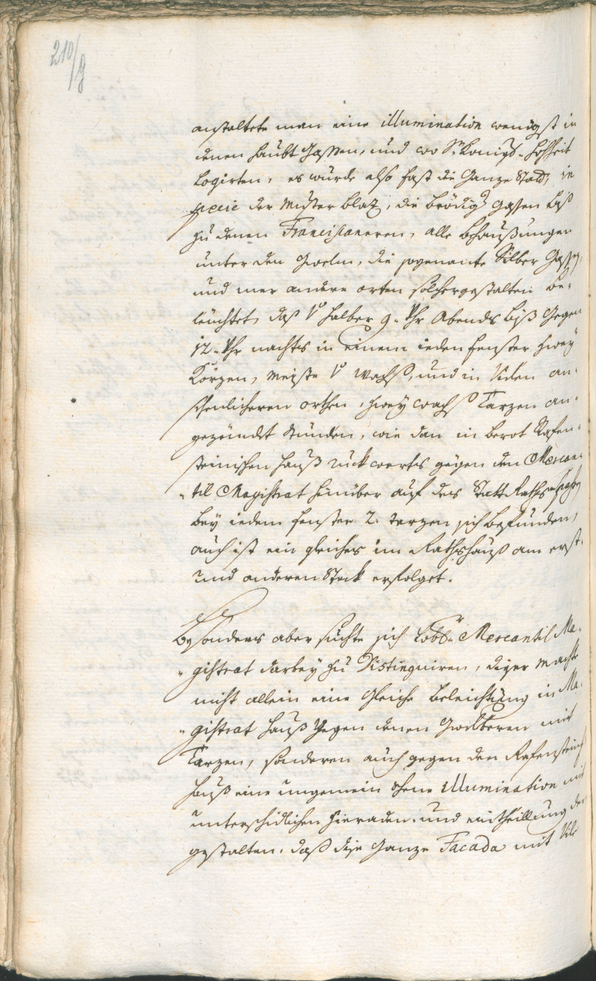 210/8
anstaltete man eine illumination wenigst in
denen haubt Gassen, und wo S: Königs: Hoheit
Logirten, es wurde also fast die ganze Statt, in
specie der Muster blaz, die brödig Gassen biß
zu denen Franciscaneren, alle behaußungen
unter den Gwelm, die sogenante Silber Gassen
und mer andere orten solchergestalten be-
leuchtet, daß v halber 9. Uhr Abends biß gegen
12. Uhr nachts in einem ieden fenster zwey
Körzen, meiste v wachs, und in vilen an-
sehnlicheren orthen, zwey wachs Tarzen an-
gezündet stunden, wie dan in
-steinischen hauß ruckwertes gegen den Mercan-
-til Magistrat hinüber auf des Statt Raths
bey iedem fenster 2. tarzen sich befunden,
auch ist ein gleiches im Rathshauß am erst-
und anderen Stock erfolget.
Besonders aber suchte sich Löbl: Mercantil Ma-
-gistrat darbey zu Distinguiren, diser machte
nicht allein eine gleiche beleichtung in Ma-
-gistrat hauß gegen denen Gwelberen mit
Tarzen, sonderen auch gegen den
hauß eine ungemein schene illumination mit
unterschidlichen Zieraden, und eintheillung der
gestalten, daß dise ganze Facada mit vile